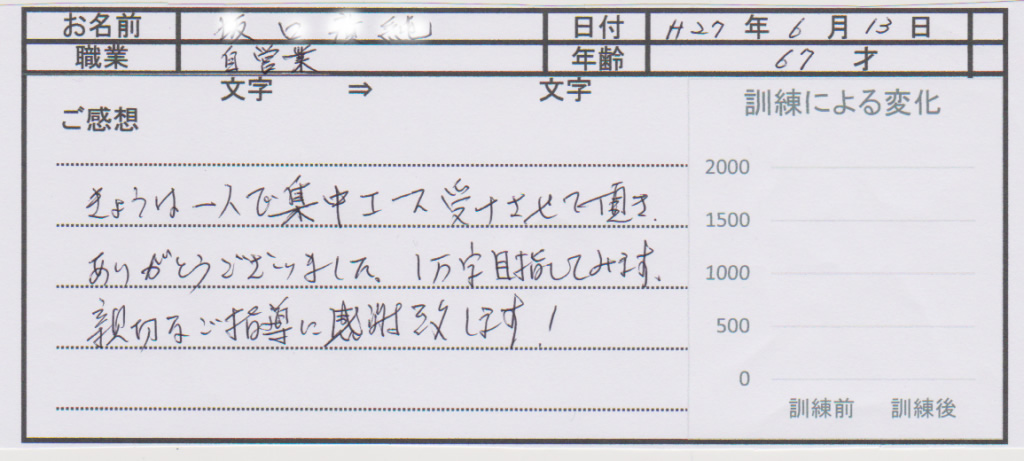 お名前 坂口 純 日付 H27 年 6 月 13 日
職業 自営業 年齢 67 才
文字 ⇒ 文字
ご感想
きょうは一人で集中コース受けさせて頂き
ありがとうございました。1万字目指してみます。
親切なご指導に感謝致します!
訓練による変化
2000
1500
1000
500
0
訓練前 訓練後